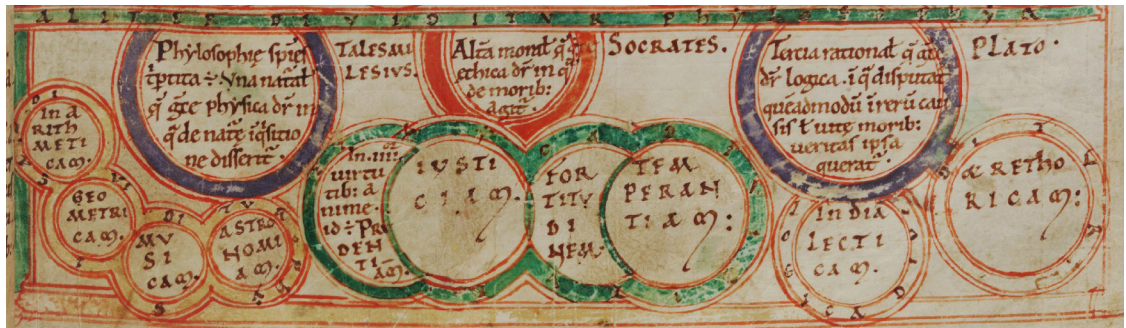 ALITER DIVIDITVR PHYLOSOPHYA
Phylosophię spẽs
tp̃tita ÷ Vna natal̃
q̃ gc̃e physica dr̃ in
q̃ de natẽ iq̃sitio
ne disserit̃.
TALES MI
LESIVS.
Alt̃a moral̃ q̃ gc̃e
ethica dr̃ in q̃
de morib:
agit̃.
SOCRATES.
Tercia rational̃ q̃ gc̃e
dr̃ logica. ĩ q̃ disputat̃
queadmodũ ĩ rerũ cau
sis ł uitę morib:
ueritas ipsa
querat̃.
PLATO.
IN A
RITH
METI
CAM.
GEO
METRI
CAM.
MV
SI
CAM.
ASTRO
NOMI
AM.
In .iiii.
uirtu
tib: a
DEN
TIĀM.
IVSTI
CIAM.
FOR
TITV
DI
NEM.
TEM
PERAN
TIAM:
IN DIA
LECTI
CAM.
& RETHO
RICAM: